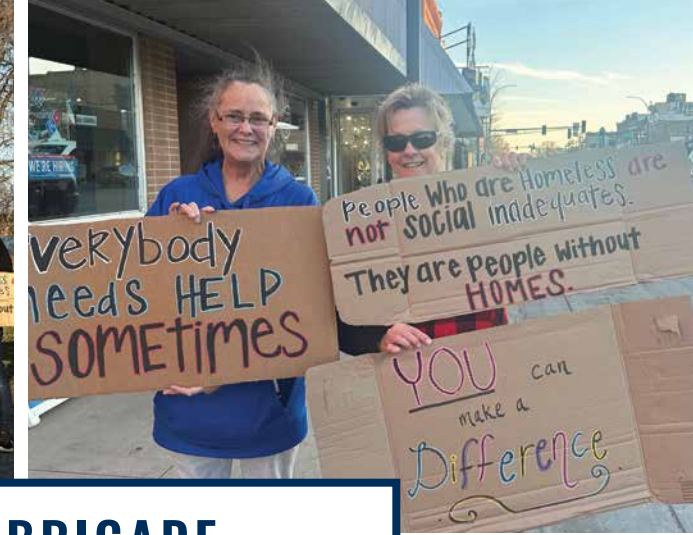 WE'RE HIRING
VERYBODY
needs HELP
SOMETIMES
People Who are Homeless are
not social inadequates.
They are people without
HOMES.
YOU can
make a
Difference
BRIGADE